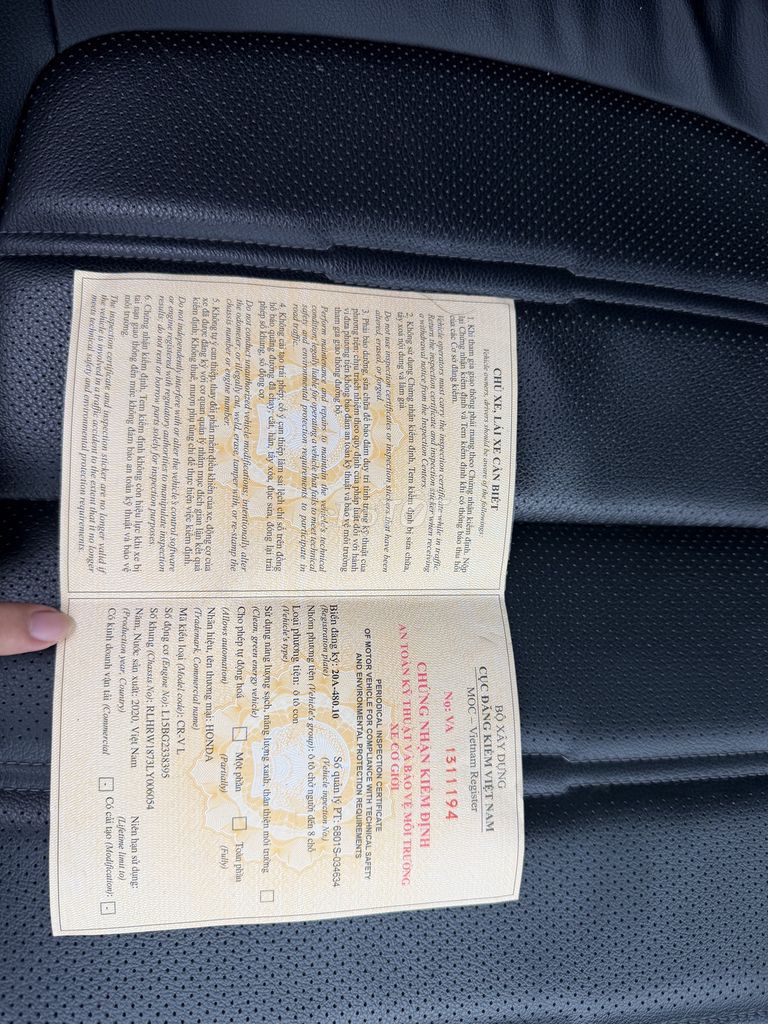 CHỦ XE, LÁI XE CẦN BIẾT
Vehicle owners, drivers should be aware of the followings:
1. Khi tham gia giao thông phải mang theo Chứng nhận kiểm định. Nộp
lại Chứng nhận kiểm định và Tem kiểm định khi có thông báo thu hồi
của các Cơ sở đăng kiểm.
Vehicle operators must carry the inspection certificate while in traffic.
Return the inspection certificate and inspection sticker when receiving
a withdrawal notice from the Inspection Centers.
2. Không sử dụng Chứng nhận kiểm định, Tem kiểm định bị sửa chữa,
tẩy xóa nội dung và làm giả.
Do not use inspection certificates or inspection stickers that have been
altered, erased, or forged.
3. Phải bảo dưỡng, sửa chữa để bảo đảm duy trì tình trạng kỹ thuật của
phương tiện; chịu trách nhiệm theo quy định của pháp luật đối với hành
vi đưa phương tiện không bảo đảm an toàn kỹ thuật và bảo vệ môi trường
tham gia giao thông đường bộ.
Perform maintenance and repairs to maintain the vehicle's technical
condition; legally liable for operating a vehicle that fails to meet technical
safety and environmental protection requirements to participate in
road traffic.
4. Không cải tạo trái phép; cố ý can thiệp làm sai lệch chỉ số trên đồng
hồ báo quãng đường đã chạy; cắt, hàn, tẩy xóa, đục sửa, đóng lại trái
phép số khung, số động cơ.
Do not conduct unauthorized vehicle modifications; intentionally alter
the odometer, or illegally cut, weld, erase, tamper with, or re-stamp the
chassis number or engine number.
5. Không tự ý can thiệp, thay đổi phần mềm điều khiển của xe, động cơ của
xe đã được đăng ký với cơ quan quản lý nhằm mục đích gian lận kết quả
kiểm định. Không thuê, mượn phụ tùng chỉ để thực hiện việc kiểm định.
Do not independently interfere with or alter the vehicle's control software
or engine registered with regulatory authorities to manipulate inspection
results; do not rent or borrow parts solely for inspection purposes.
6. Chứng nhận kiểm định, Tem kiểm định không còn hiệu lực khi xe bị
tai nạn giao thông đến mức không đảm bảo an toàn kỹ thuật và bảo vệ
môi trường.
The inspection certificate and inspection sticker are no longer valid if
the vehicle is involved in a traffic accident to the extent that it no longer
meets technical safety and environmental protection requirements.
BỘ XÂY DỰNG
CỤC ĐĂNG KIỂM VIỆT NAM
MOC – Vietnam Register
No: VA 1311194
CHỨNG NHẬN KIỂM ĐỊNH
AN TOÀN KỸ THUẬT VÀ BẢO VỆ MÔI TRƯỜNG
XE CƠ GIỚI
PERIODICAL INSPECTION CERTIFICATE
OF MOTOR VEHICLE FOR COMPLIANCE WITH TECHNICAL SAFETY
AND ENVIRONMENTAL PROTECTION REQUIREMENTS
Biển đăng ký: 20A-480.10 Số quản lý PT: 6801S-034634
(Registration plate) (Vehicle inpection No.)
Nhóm phương tiện (Vehicle's group): ô tô chở người đến 8 chỗ
Loại phương tiện: ô tô con
(Vehicle's type)
Sử dụng năng lượng sạch, năng lượng xanh, thân thiện môi trường
(Clean, green energy vehicle)
Cho phép tự động hoá Một phần Toàn phần
(Allows automation) (Partially) (Fully)
Nhãn hiệu, tên thương mại: HONDA
(Trademark, Commercial name)
Mã kiểu loại (Model code): CR-V L
Số động cơ (Engine No): L15BG2338395
Số khung (Chassis No): RLHRW1873LY006054
Năm, Nước sản xuất: 2020, Việt Nam Niên hạn sử dụng:
(Production year, Country) (Lifetime limit to)
Có kinh doanh vận tải (Commercial - Có cải tạo (Modification): -